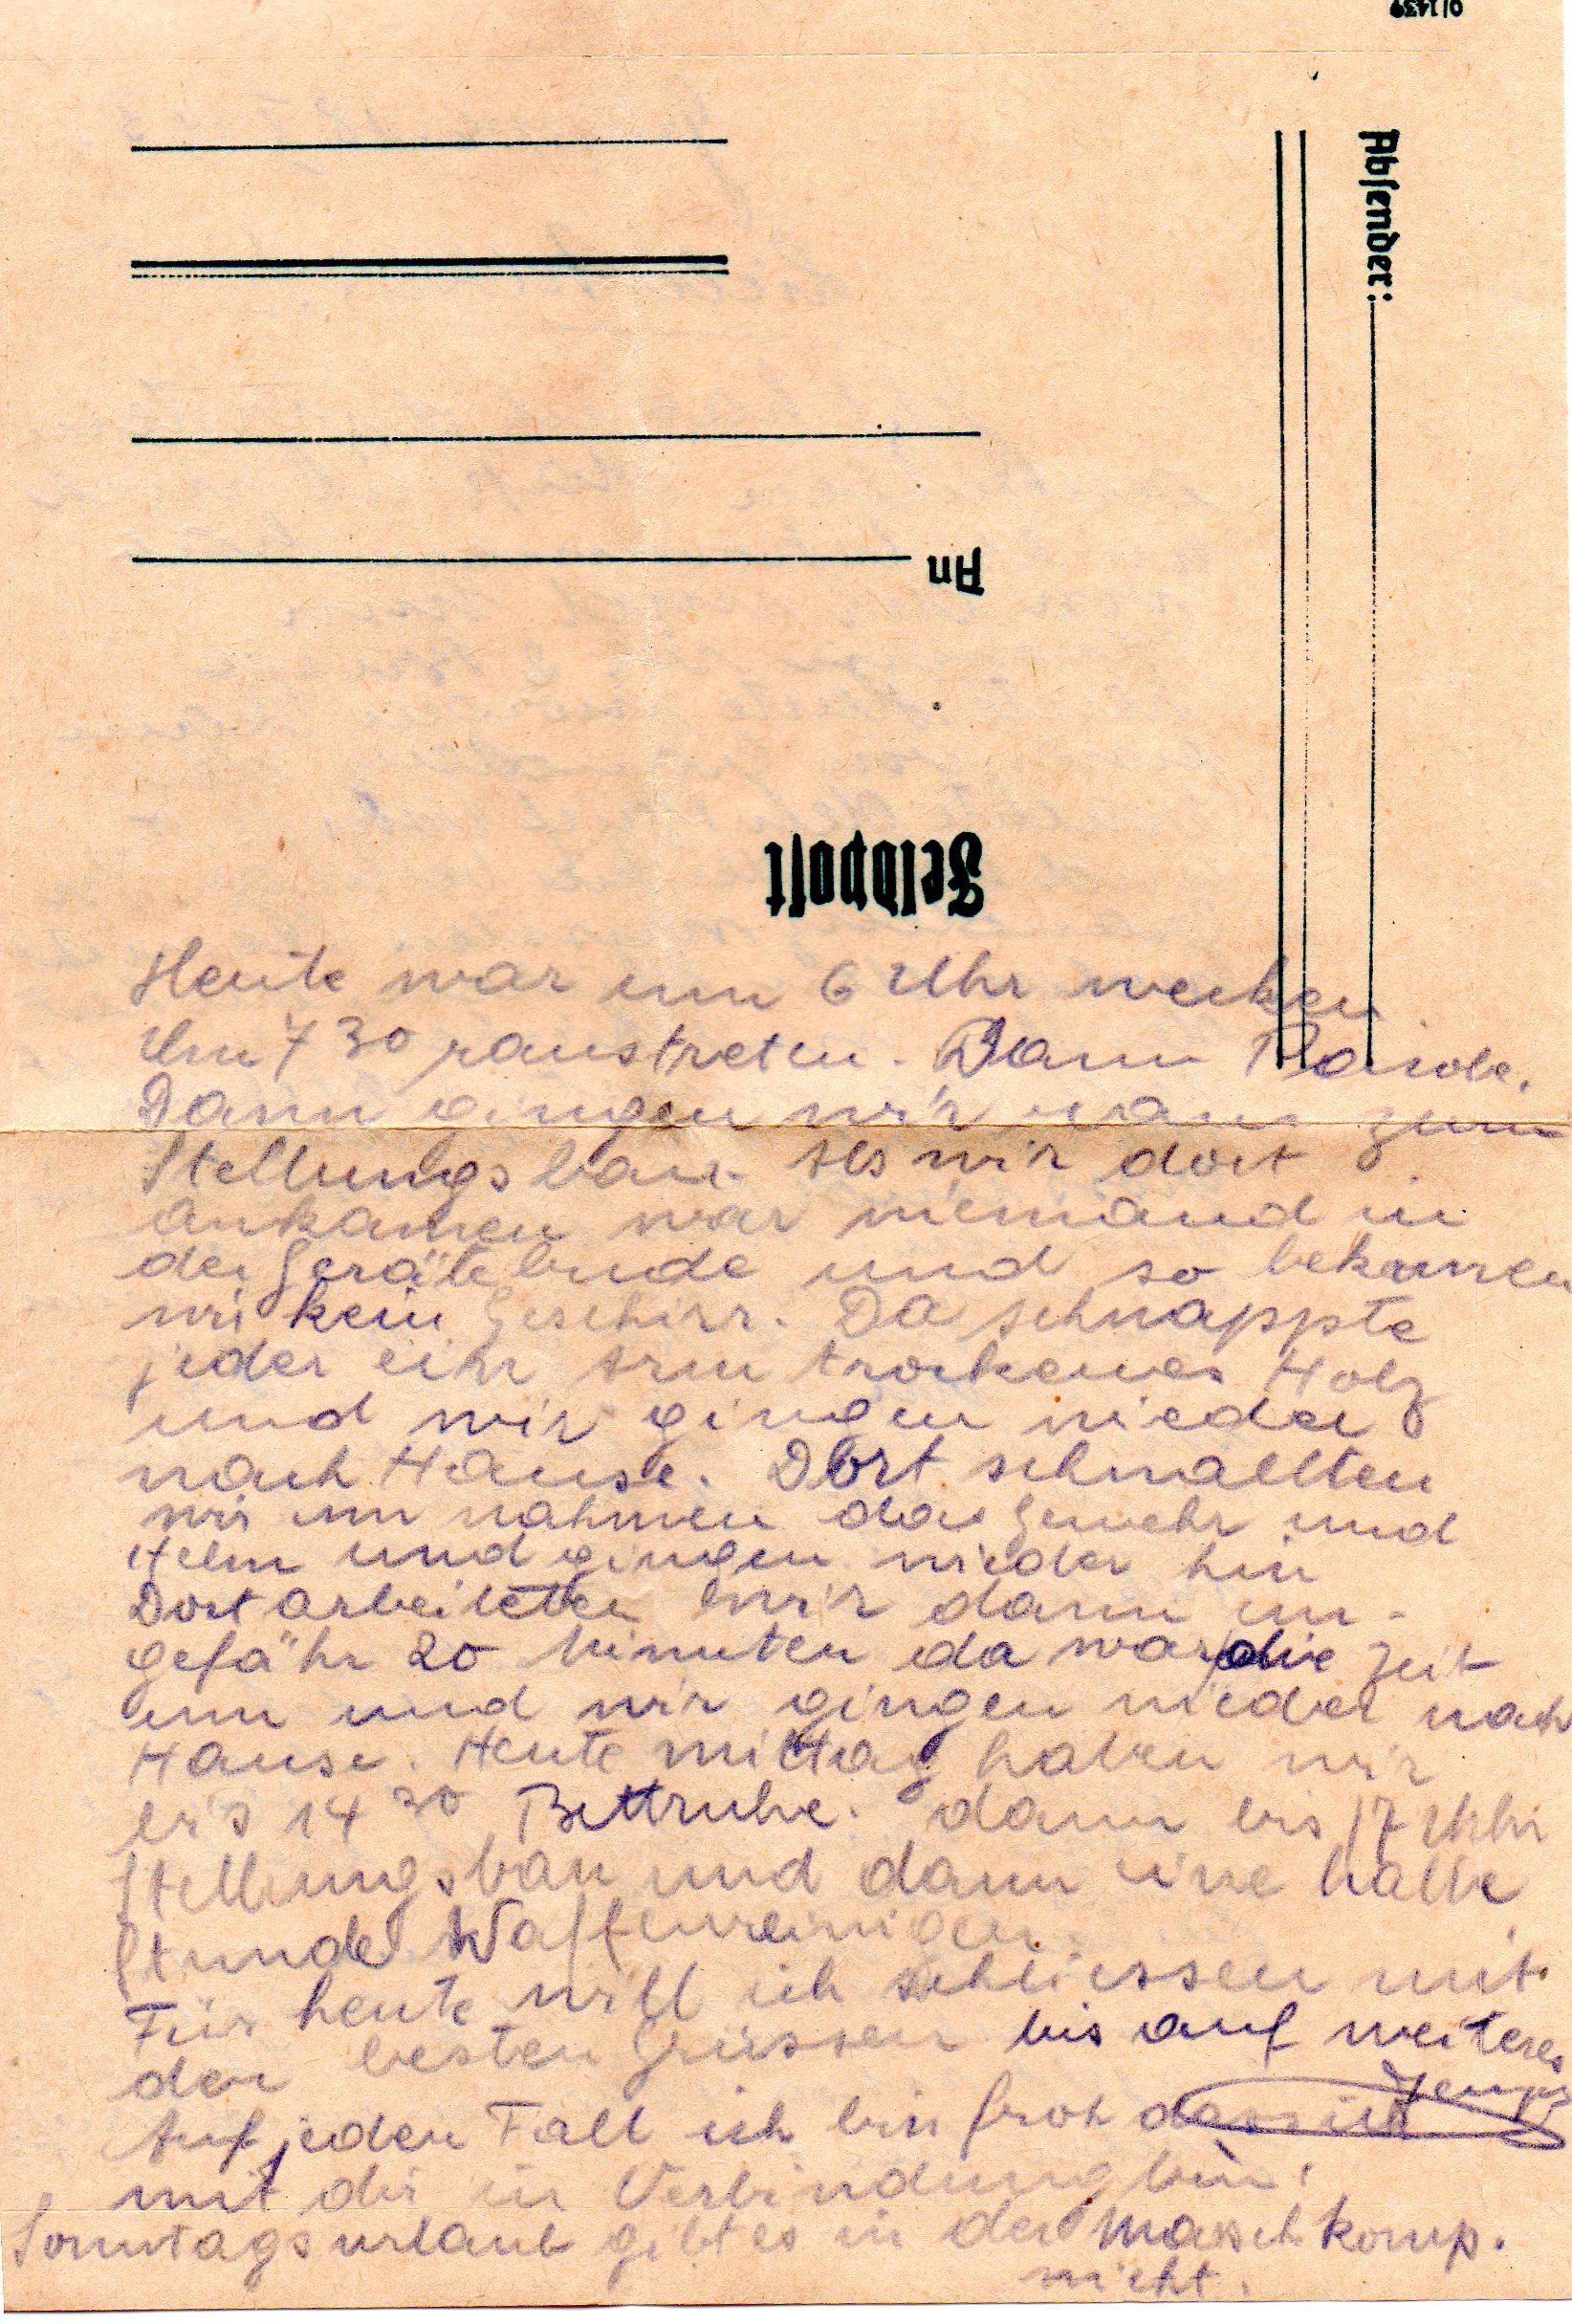 0/1439
Absender:
An
Feldpost
Heute war um 6 Uhr wecken
Um 7 30 raustreten. Dann Parole.
Dann gingen wir raus zum
Stellungsbau. Als wir dort
ankamen war niemand in
der Gerätebude und so bekamen
wir kein Geschirr. Da schnappte
jeder ein Arm trockenes Holz
und wir gingen wieder
nach Hause. Dort schnallten
wir um nahmen das Gewehr und
Helm und gingen wieder hin
Dort arbeiteten wir dann un-
gefähr 20 Minuten da war die Zeit
um und wir gingen wieder nach
Hause. Heute mittag haben wir
bis 14 30 Bettruhe. dann bis 17 Uhr
Stellungsbau und dann eine halbe
Stunde Waffenreinigen.
Für heute will ich schliessen mit
den besten Grüssen bis auf weiteres
Auf jeden Fall ich bin froh dass ich
mit dir in Verbindung bin.
Sonntagsurlaub gibt es in der Marschkomp.
nicht.